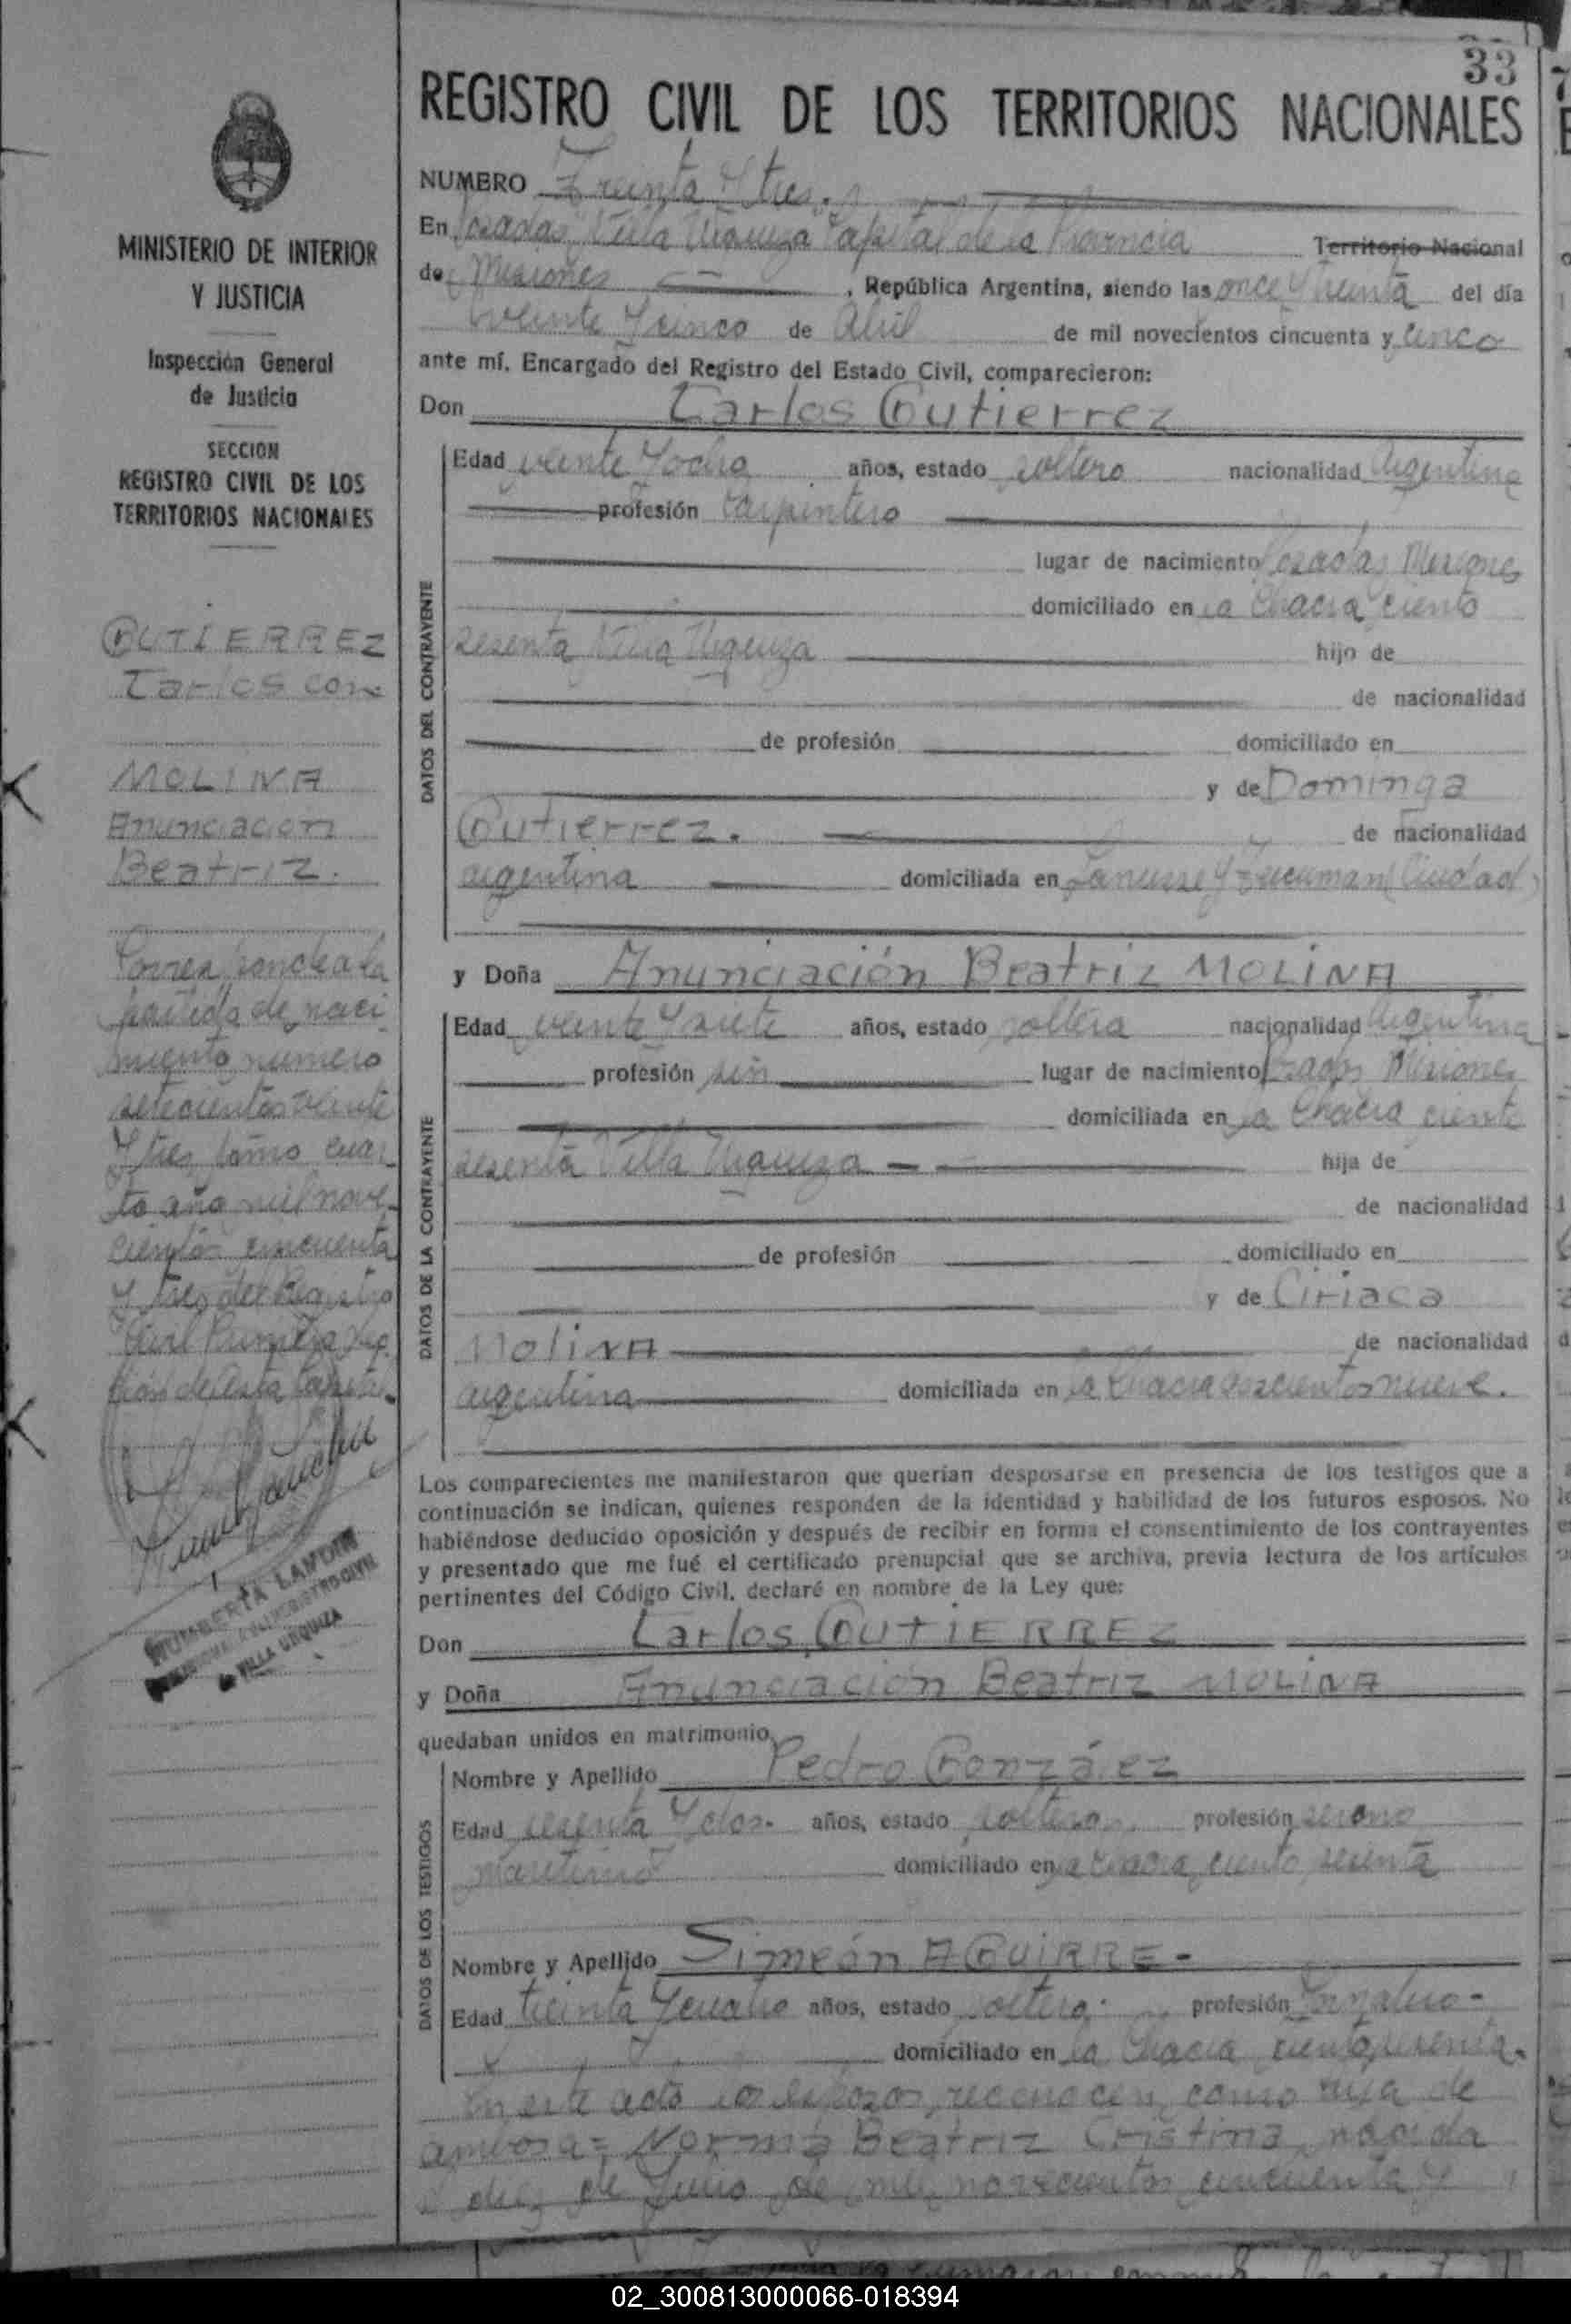 33
REGISTRO CIVIL DE LOS TERRITORIOS NACIONALES
MINISTERIO DE INTERIOR
Y JUSTICIA
Inspección General
de Justicia
SECCION
REGISTRO CIVIL DE LOS
TERRITORIOS NACIONALES
GUTIERREZ
Carlos con
MOLINA
Anunciacion
Beatriz.
Corresponde a la
partida de naci
miento numero
setecientos veinte
y tres tomo cuar
to año mil nove
cientos cincuenta
y tres del Registro
Civil Primera Sec
ción de esta Capital.
VILLA URQUIZA
NUMERO Treinta y tres.
En Posadas, Villa Urquiza Capital de la Provincia Territorio Nacional
de Misiones, República Argentina, siendo las once y treinta del día
veinte y cinco de Abril de mil novecientos cincuenta y cinco
ante mí. Encargado del Registro del Estado Civil, comparecieron:
Don Carlos Gutierrez
DATOS DEL CONTRAYENTE
Edad veinte y ocho años, estado soltero nacionalidad Argentina
profesión Carpintero
lugar de nacimiento Posadas Misiones
domiciliado en la Chacra ciento
sesenta Villa Urquiza hijo de
de nacionalidad
de profesión domiciliado en
y de Dominga
Gutierrez. de nacionalidad
argentina domiciliada en Lanusse y Tucuman (Ciudad)
y Doña Anunciación Beatriz MOLINA
DATOS DE LA CONTRAYENTE
Edad veinte y siete años, estado soltera nacionalidad Argentina
profesión sin lugar de nacimiento Posadas Misiones
domiciliada en la Chacra ciento
sesenta Villa Urquiza hija de
de nacionalidad
de profesión domiciliado en
y de Ciriaca
MOLINA de nacionalidad
argentina domiciliada en la Chacra doscientos nueve.
Los comparecientes me manifestaron que querían desposarse en presencia de los testigos que a
continuación se indican, quienes responden de la identidad y habilidad de los futuros esposos. No
habiéndose deducido oposición y después de recibir en forma el consentimiento de los contrayentes
y presentado que me fué el certificado prenupcial que se archiva, previa lectura de los artículos
pertinentes del Código Civil, declaré en nombre de la Ley que:
Don Carlos GUTIERREZ
y Doña Anunciación Beatriz MOLINA
quedaban unidos en matrimonio.
DATOS DE LOS TESTIGOS
Nombre y Apellido Pedro González
Edad sesenta y dos. años, estado soltero, profesión sereno
maritimo domiciliado en la Chacra ciento sesenta
Nombre y Apellido Simeón AGUIRRE-
Edad treinta y cuatro años, estado soltero. profesión Jornalero-
domiciliado en la Chacra ciento sesenta.
En este acto los esposos reconocen como hija de
ambos a= Norma Beatriz Cristina, nacida
el diez de Junio de mil novecientos cincuenta y
02_300813000066-018394